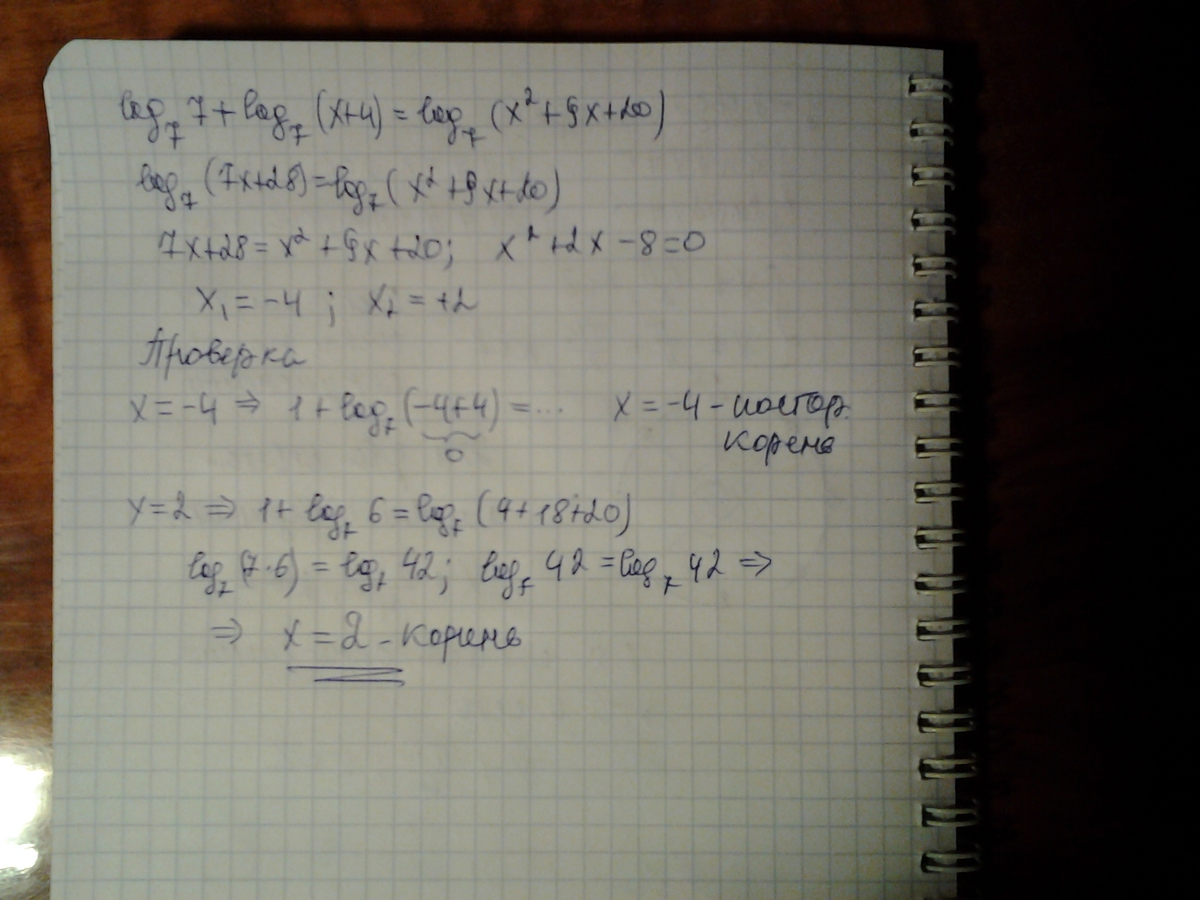 log₇ 7 + log₇ (x+4) = log₇ (x² + 9x + 20)
log₇ (7x+28) = log₇ (x² + 9x + 20)
7x+28 = x² + 9x + 20; x² + 2x − 8 = 0
x₁ = −4 ; x₂ = +2
Проверка
x = −4 ⇒ 1 + log₇ (−4+4) = ... x = −4 – постор.
0 корень
x = 2 ⇒ 1 + log₇ 6 = log₇ (4+18+20)
log₇ (7·6) = log₇ 42; log₇ 42 = log₇ 42 ⇒
⇒ x = 2 – корень